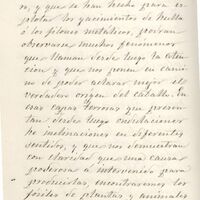 n, y que se han hecho para ex-
plotar los yacimientos de hulla
ó los filones metálicos, podran
observarse muchos fenomenos
que llaman desde luego la aten-
cion y que nos ponen en cami-
no de poder aclarar mejor el
verdadero origen del Caballo. En
esas capas terrosas que presen-
tan desde luego ondulaciones
ó inclinaciones en diferentes
sentidos, y que nos demuestran
con claridad que una causa
poderosa a intervenido para
producirlas encontraremos los
fósiles de plantas y animales